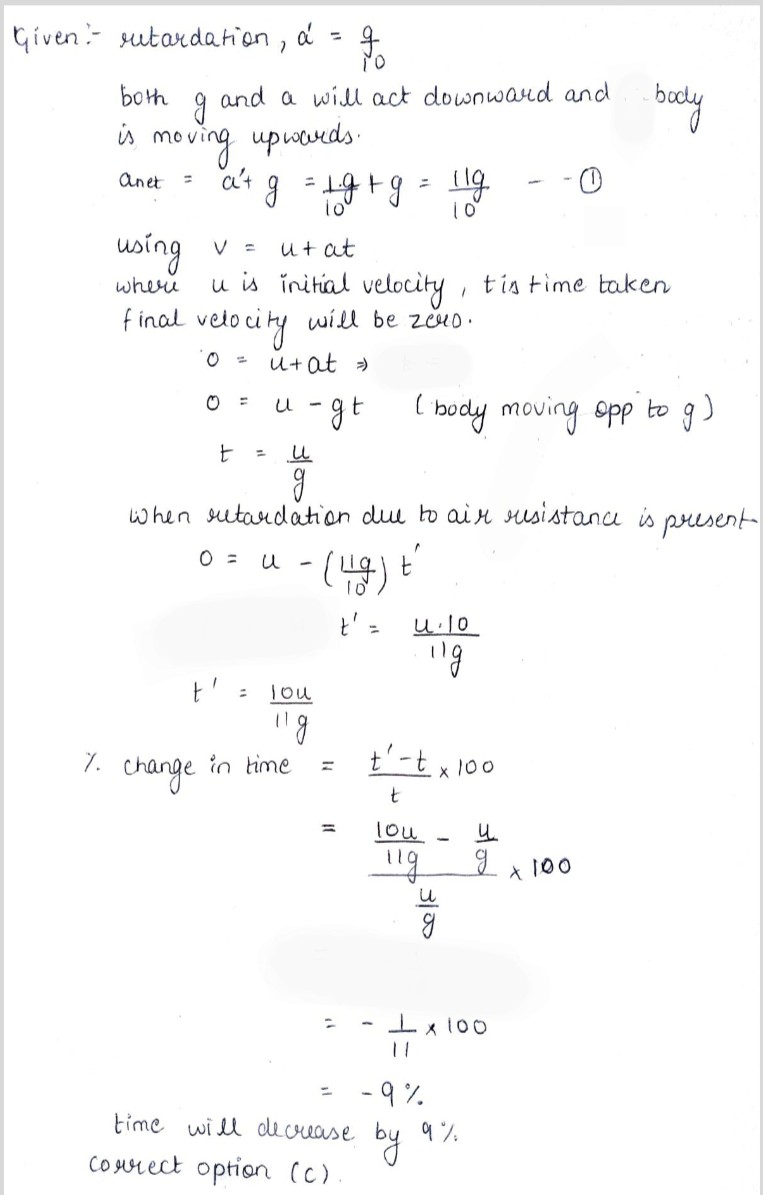 Given:- retardation, a' = g/10
both g and a will act downward and body
is moving upwards.
anet = a'+ g = 1g/10 + g = 11g/10 - - ①
using v = u + at
where u is initial velocity, t is time taken
final velocity will be zero.
0 = u + at ⇒
0 = u - gt (body moving opp to g)
t = u/g
when retardation due to air resistance is present
0 = u - (11g/10) t'
t' = u·10/11g
t' = 10u/11g
% change in time = t'-t/t × 100
= (10u/11g - u/g)/(u/g) × 100
= - 1/11 × 100
= - 9 %
time will decrease by 9%
correct option (c).